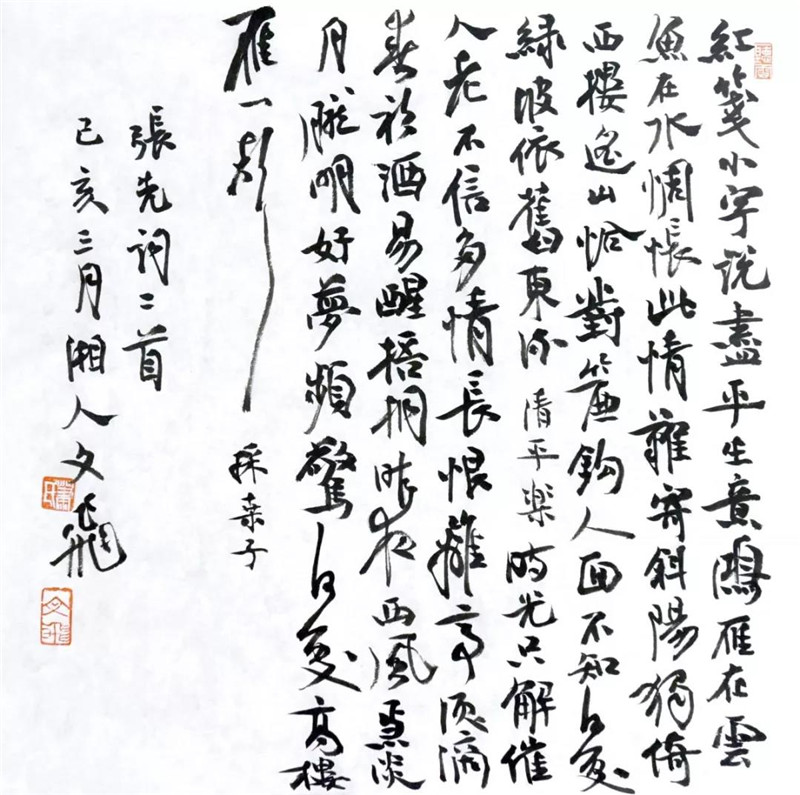 紅箋小字說盡平生意鴻雁在雲
魚在水惆悵此情難寄斜陽獨倚
西樓遙山恰對簾鈎人面不知何處
綠波依舊東流 清平樂 時光只解催
人老不信多情長恨離亭淚滴
春衫酒易醒梧桐昨夜西風急淡
月朧明好夢頻驚何處高樓
雁一聲 採桑子
張先詞二首
己亥三月湘人文飛
文飛